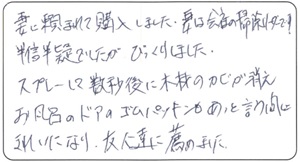 妻に頼まれて購入しました。妻は会食の帰りです!
半信半疑でしたがびっくりしました。
スプレーして数秒後に木材のカビが消え
お風呂のドアのゴムパッキンもあっと言う間に
きれいになり、友人達に薦めました。